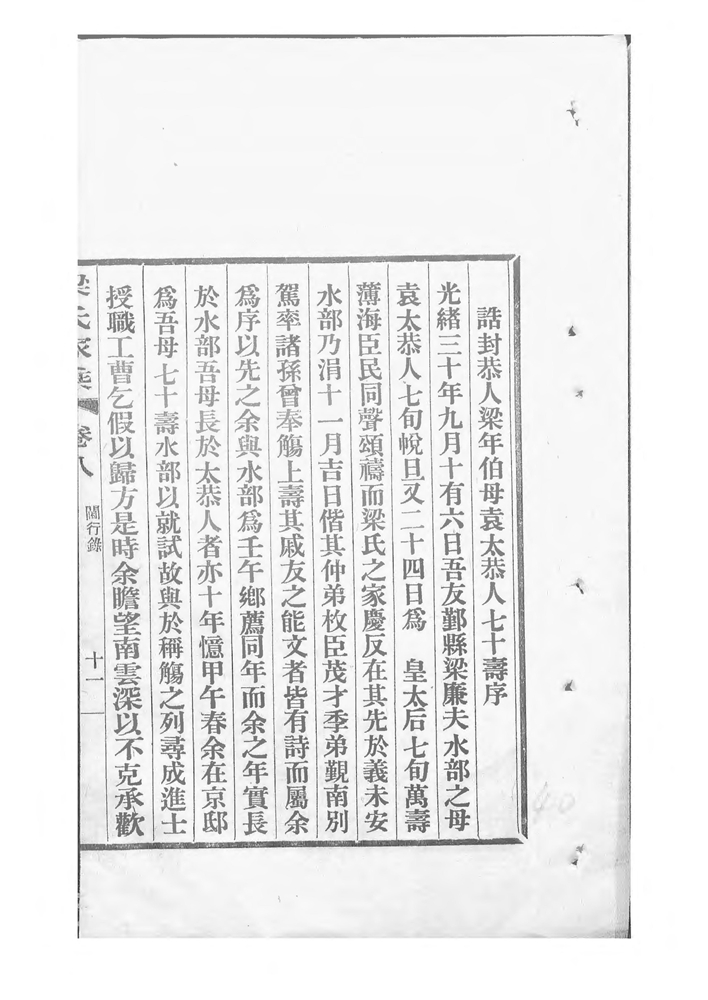 誥封恭人梁年伯母袁太恭人七十壽序
光緒三十年九月十有六日吾友鄞縣梁廉夫水部之母
袁太恭人七旬帨旦又二十四日爲　皇太后七旬萬壽
薄海臣民同聲頌禱而梁氏之家慶反在其先於義未安
水部乃涓十一月吉日偕其仲弟枚臣茂才季弟覲南別
駕率諸孫曾奉觴上壽其戚友之能文者皆有詩而屬余
爲序以先之余與水部爲壬午鄉薦同年而余之年實長
於水部吾母長於太恭人者亦十年憶甲午春余在京邸
爲吾母七十壽水部以就試故與於稱觴之列尋成進士
授職工曹乞假以歸方是時余瞻望南雲深以不克承歡
梁氏家乘
卷八
闈行錄
十一
40